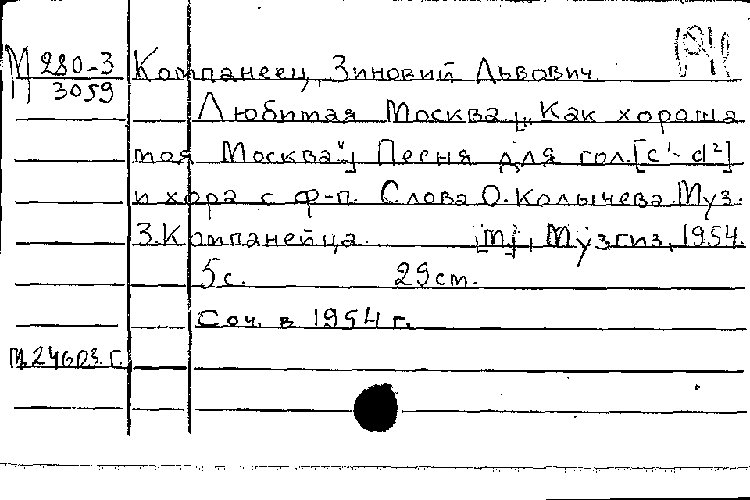 М 280-3
3059
Компанеец, Зиновий Львович.
Любимая Москва [„Как хороша
моя Москва“] Песня для гол. [c¹- d²]
и хора с ф-п. Слова О. Колычева. Муз.
З. Компанейца. [М], Музгиз, 1954.
5 с. 29 см.
Соч. в 1954 г.